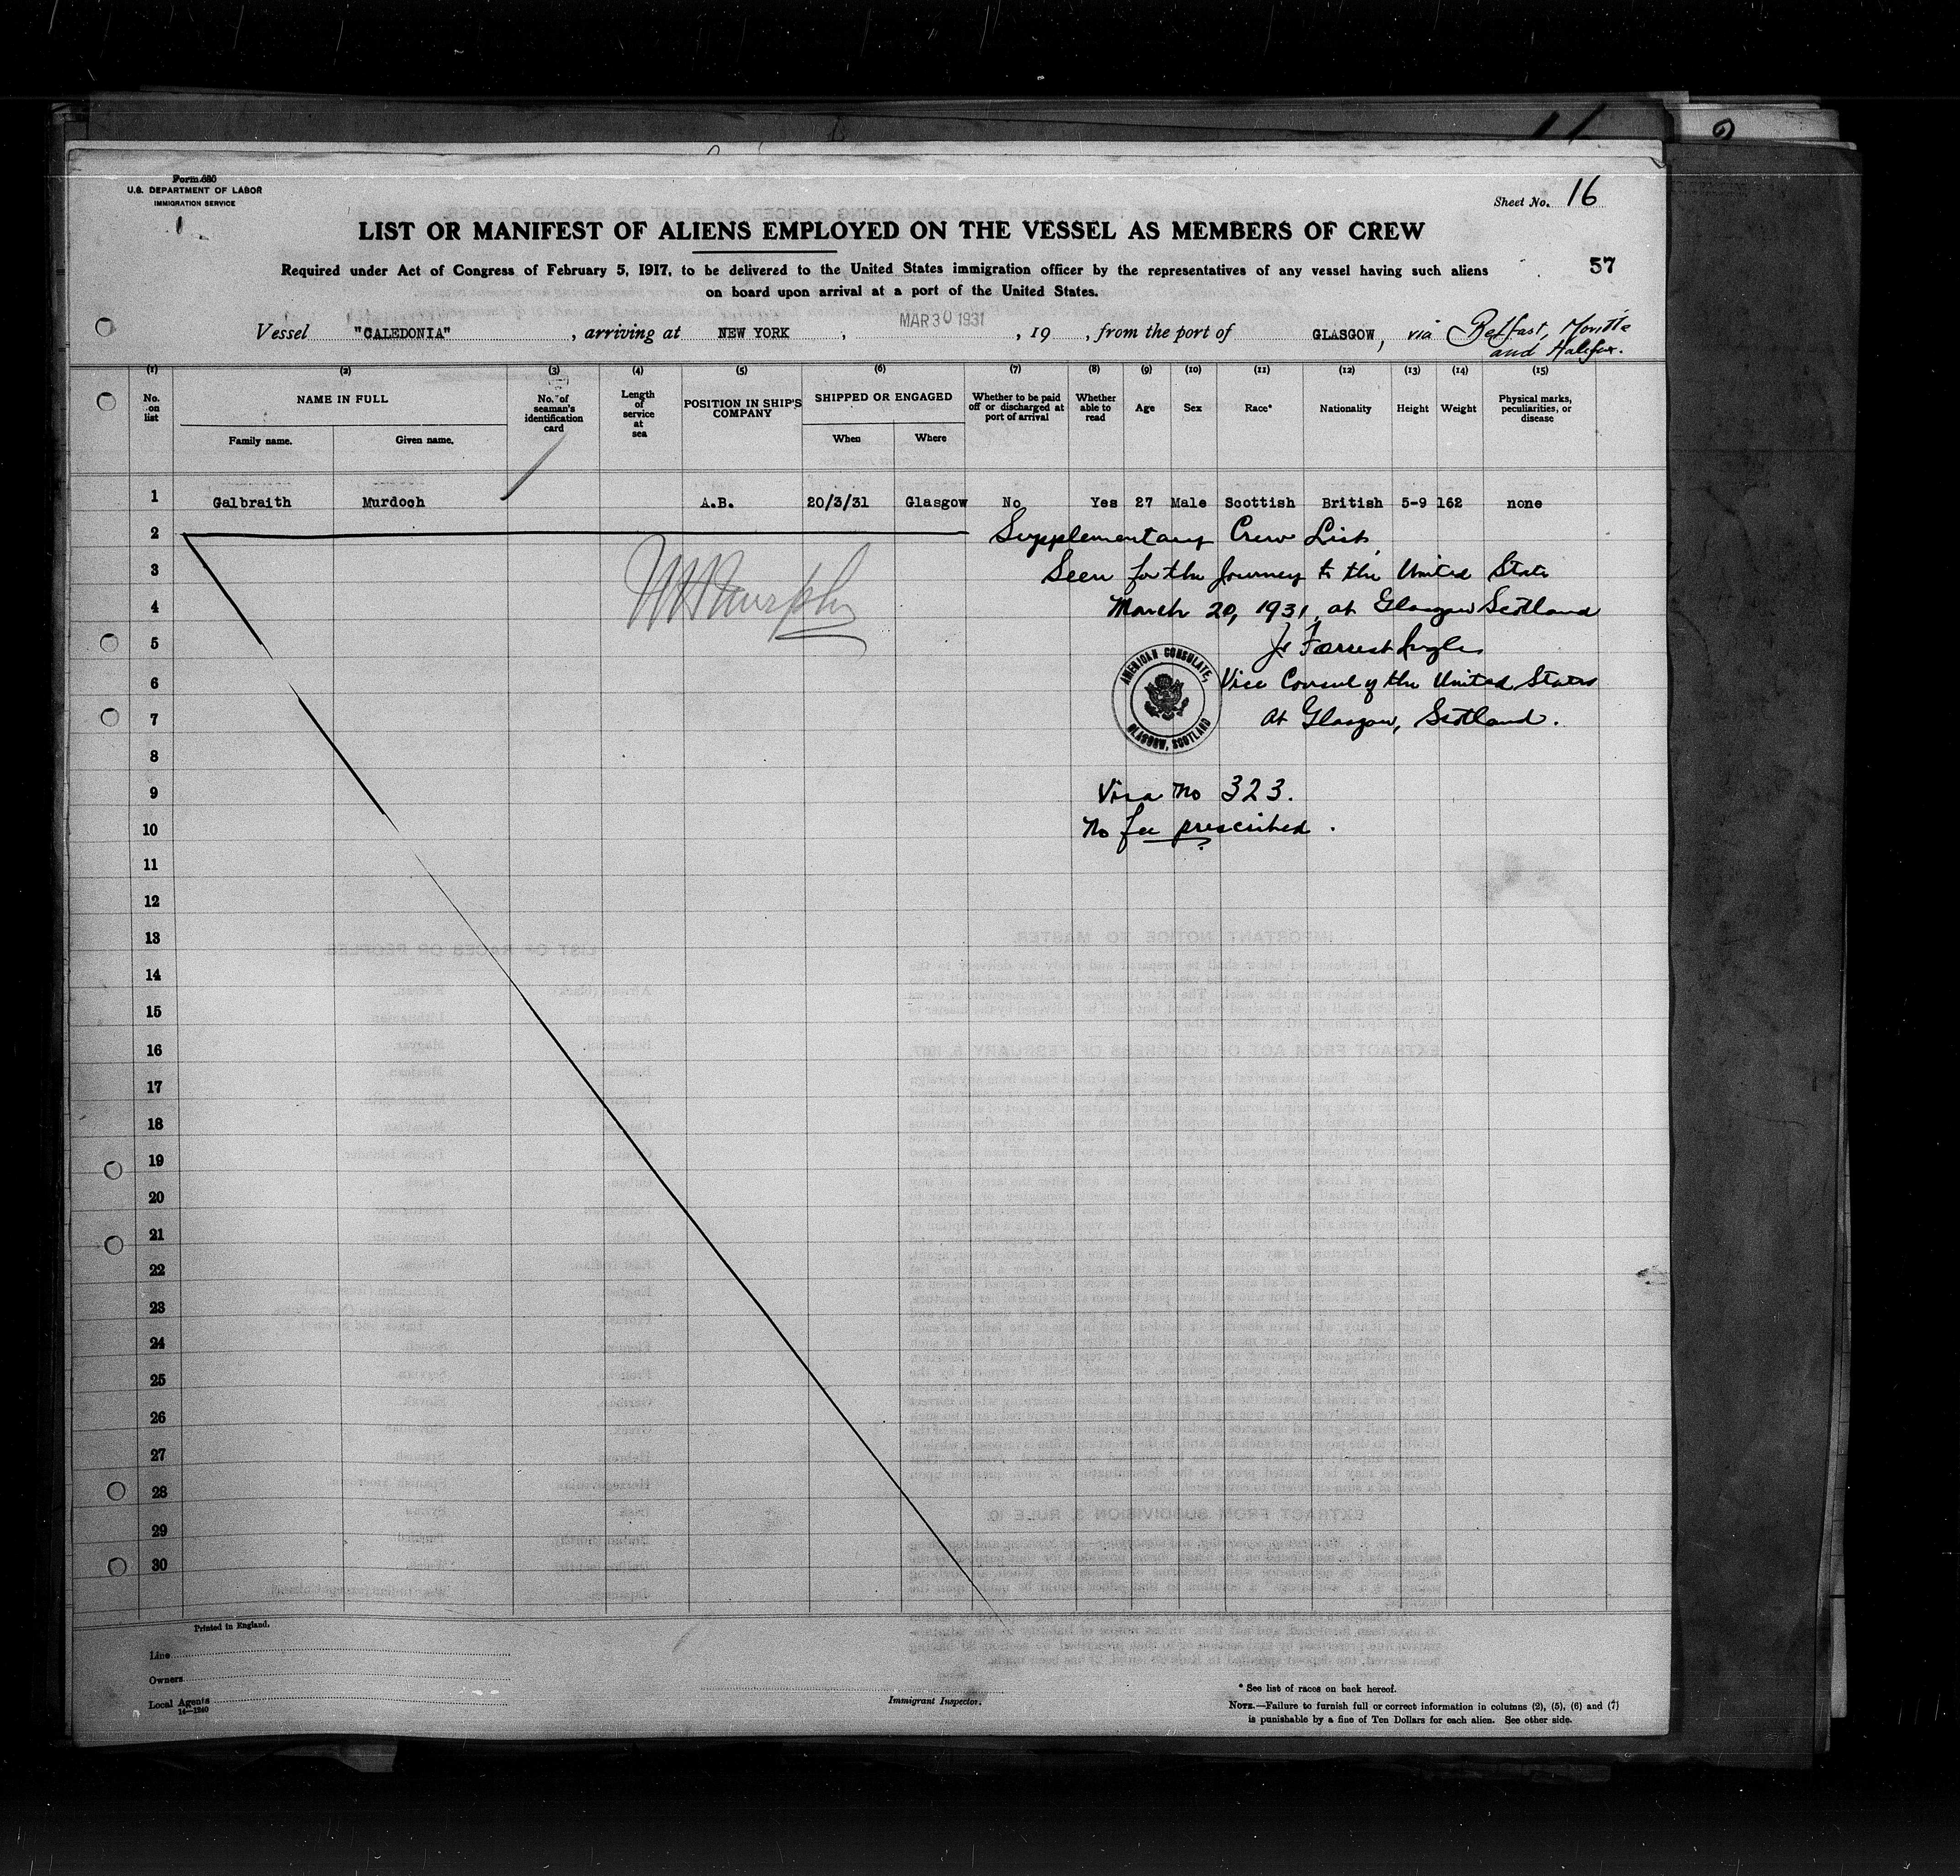 Form 680
U.S. DEPARTMENT OF LABOR
IMMIGRATION SERVICE
Sheet No. 16
LIST OR MANIFEST OF ALIENS EMPLOYED ON THE VESSEL AS MEMBERS OF CREW
Required under Act of Congress of February 5, 1917, to be delivered to the United States immigration officer by the representatives of any vessel having such aliens
on board upon arrival at a port of the United States.
57
Vessel "CALEDONIA", arriving at NEW YORK, MAR 30 1931, 19 , from the port of GLASGOW, via Belfast, Moville
and Halifax.
(1) (2) (3) (4) (5) (6) (7) (8) (9) (10) (11) (12) (13) (14) (15)
No. on list
NAME IN FULL
Family name. Given name.
No. of seaman's identification card
Length of service at sea
POSITION IN SHIP'S COMPANY
SHIPPED OR ENGAGED
When Where
Whether to be paid off or discharged at port of arrival
Whether able to read
Age
Sex
Race*
Nationality
Height
Weight
Physical marks, peculiarities, or disease
1 Galbraith Murdoch A.B. 20/3/31 Glasgow No Yes 27 Male Scottish British 5-9 162 none
2 Supplementary Crew List
3 Seen for the Journey to the United States
4 March 20, 1931, at Glasgow Scotland
5 Forrest Ingle
6 Vice Consul of the United States
7 At Glasgow, Scotland.
AMERICAN CONSULATE, GLASGOW, SCOTLAND
Murphy
8
9 Visa No 323.
10 No fee prescribed.
11
12
13
14
15
16
17
18
19
20
21
22
23
24
25
26
27
28
29
30
Printed in England.
Line
Owners
Local Agents
14—1240
Immigrant Inspector.
* See list of races on back hereof.
NOTE.—Failure to furnish full or correct information in columns (2), (5), (6) and (7)
is punishable by a fine of Ten Dollars for each alien. See other side.